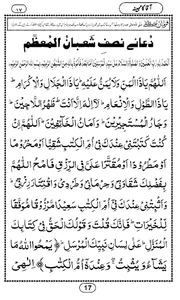 آقا کا مہینہ
١٧
دُعائے نصفِ شَعبانُ الْمُعَظَّم
اَللّٰهُمَّ يَا ذَا الْمَنِّ وَلَا يُمَنُّ عَلَيْهِ ط يَا ذَا الْجَلَالِ وَالْاِكْرَامِ ط
يَا ذَا الطَّوْلِ وَالْاِنْعَامِ ط لَآ اِلٰهَ اِلَّا اَنْتَ ط ظَهْرُ اللَّاجِيْنَ ط
وَجَارُ الْمُسْتَجِيْرِيْنَ ط وَاَمَانُ الْخَآئِفِيْنَ ط اَللّٰهُمَّ اِنْ
كُنْتَ كَتَبْتَنِيْ عِنْدَكَ فِيْٓ اُمِّ الْكِتٰبِ شَقِيًّا اَوْ مَحْرُوْمًا
اَوْ مَطْرُوْدًا اَوْ مُقَتَّرًا عَلَيَّ فِي الرِّزْقِ فَامْحُ اللّٰهُمَّ
بِفَضْلِكَ شَقَاوَتِيْ وَحِرْمَانِيْ وَطَرْدِيْ وَاقْتِتَارَ رِزْقِيْ ط
وَاَثْبِتْنِيْ عِنْدَكَ فِيْٓ اُمِّ الْكِتٰبِ سَعِيْدًا مَّرْزُوْقًا مُّوَفَّقًا
لِّلْخَيْرَاتِ ط فَاِنَّكَ قُلْتَ وَقَوْلُكَ الْحَقُّ فِيْ كِتَابِكَ
الْمُنَزَّلِ ط عَلٰى لِسَانِ نَبِيِّكَ الْمُرْسَلِ ط ﴿يَمْحُوا اللّٰهُ مَا
يَشَآءُ وَيُثْبِتُ وَعِنْدَهٗٓ اُمُّ الْكِتٰبِ﴾ اِلٰهِيْ
17